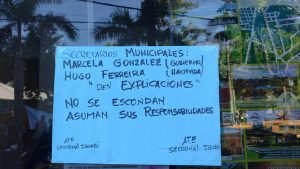 SECRETARIOS MUNICIPALES:
MARCELA GONZALEZ (GOBIERNO)
HUGO FERREIRA (HACIENDA)
"DEN EXPLICACIONES"
NO SE ESCONDAN
ASUMAN SUS RESPONSABILIDADES
ATE
SECCIONAL IGUAZÚ
ATE
SECCIONAL IGUAZÚ